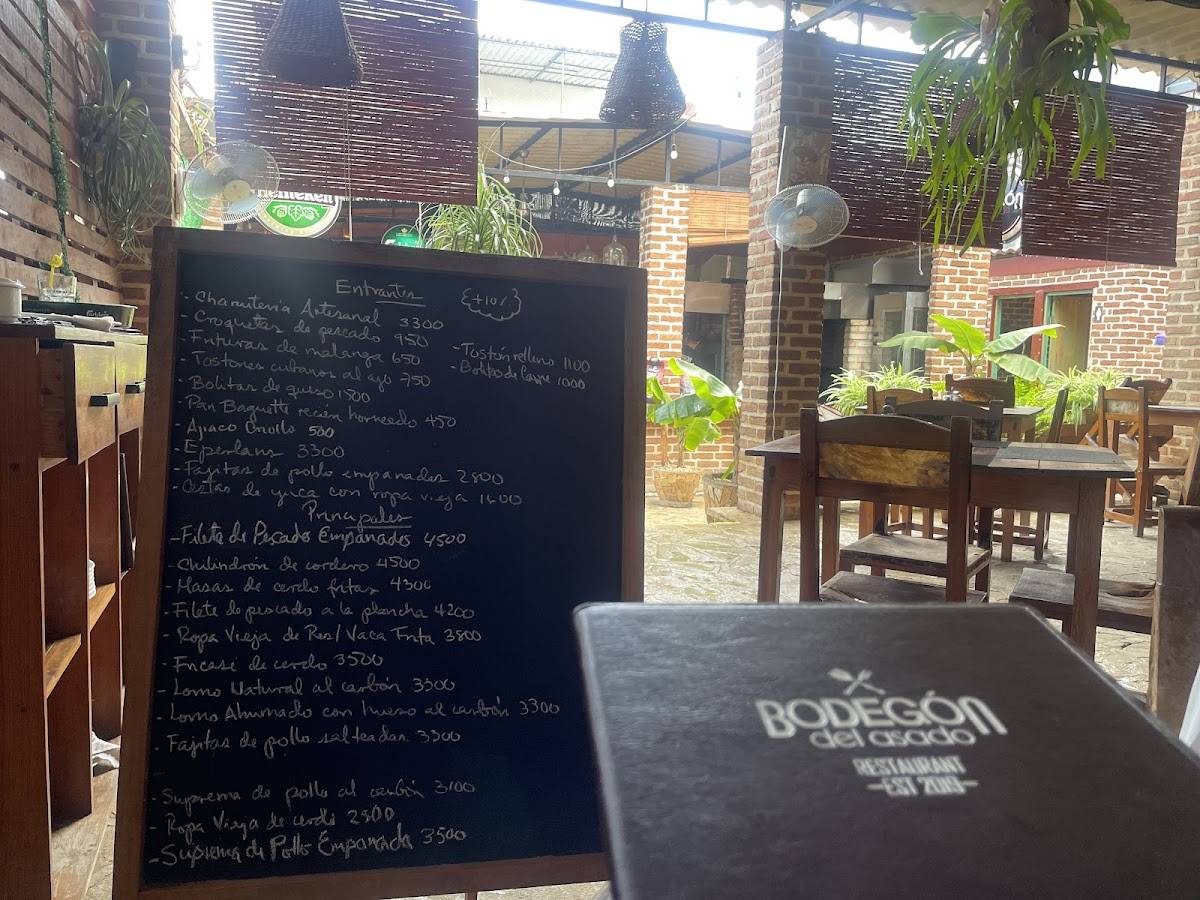 Heineken
Entrantes
{+10%}
- Charcutería Artesanal 3300
- Croquetas de pescado 950
- Frituras de malanga 650
- Tostones cubanos al ajo 750
- Bolitas de queso 1500
- Pan Baguette recien horneado 450
- Ajiaco Criollo 500
- Eperlans 3300
- Fajitas de pollo empanadas 2800
- Cestas de yuca con ropa vieja 1600
- Tostón relleno 1100
- Bolitas de Carne 1000
Principales
- Filete de Pescado Empanados 4500
- Chilindrón de cordero 4500
- Masas de cerdo fritas 4300
- Filete de pescado a la plancha 4200
- Ropa Vieja de Res/Vaca Frita 3800
- Encasé de cerdo 3500
- Lomo Natural al carbón 3300
- Lomo Ahumado con hueso al carbón 3300
- Fajitas de pollo salteadas 3300
- Suprema de pollo al carbón 3100
- Ropa Vieja de cerdo 2800
- Suprema de Pollo Empanada 3500
BODEGÓN
del asado
RESTAURANT
EST 2019